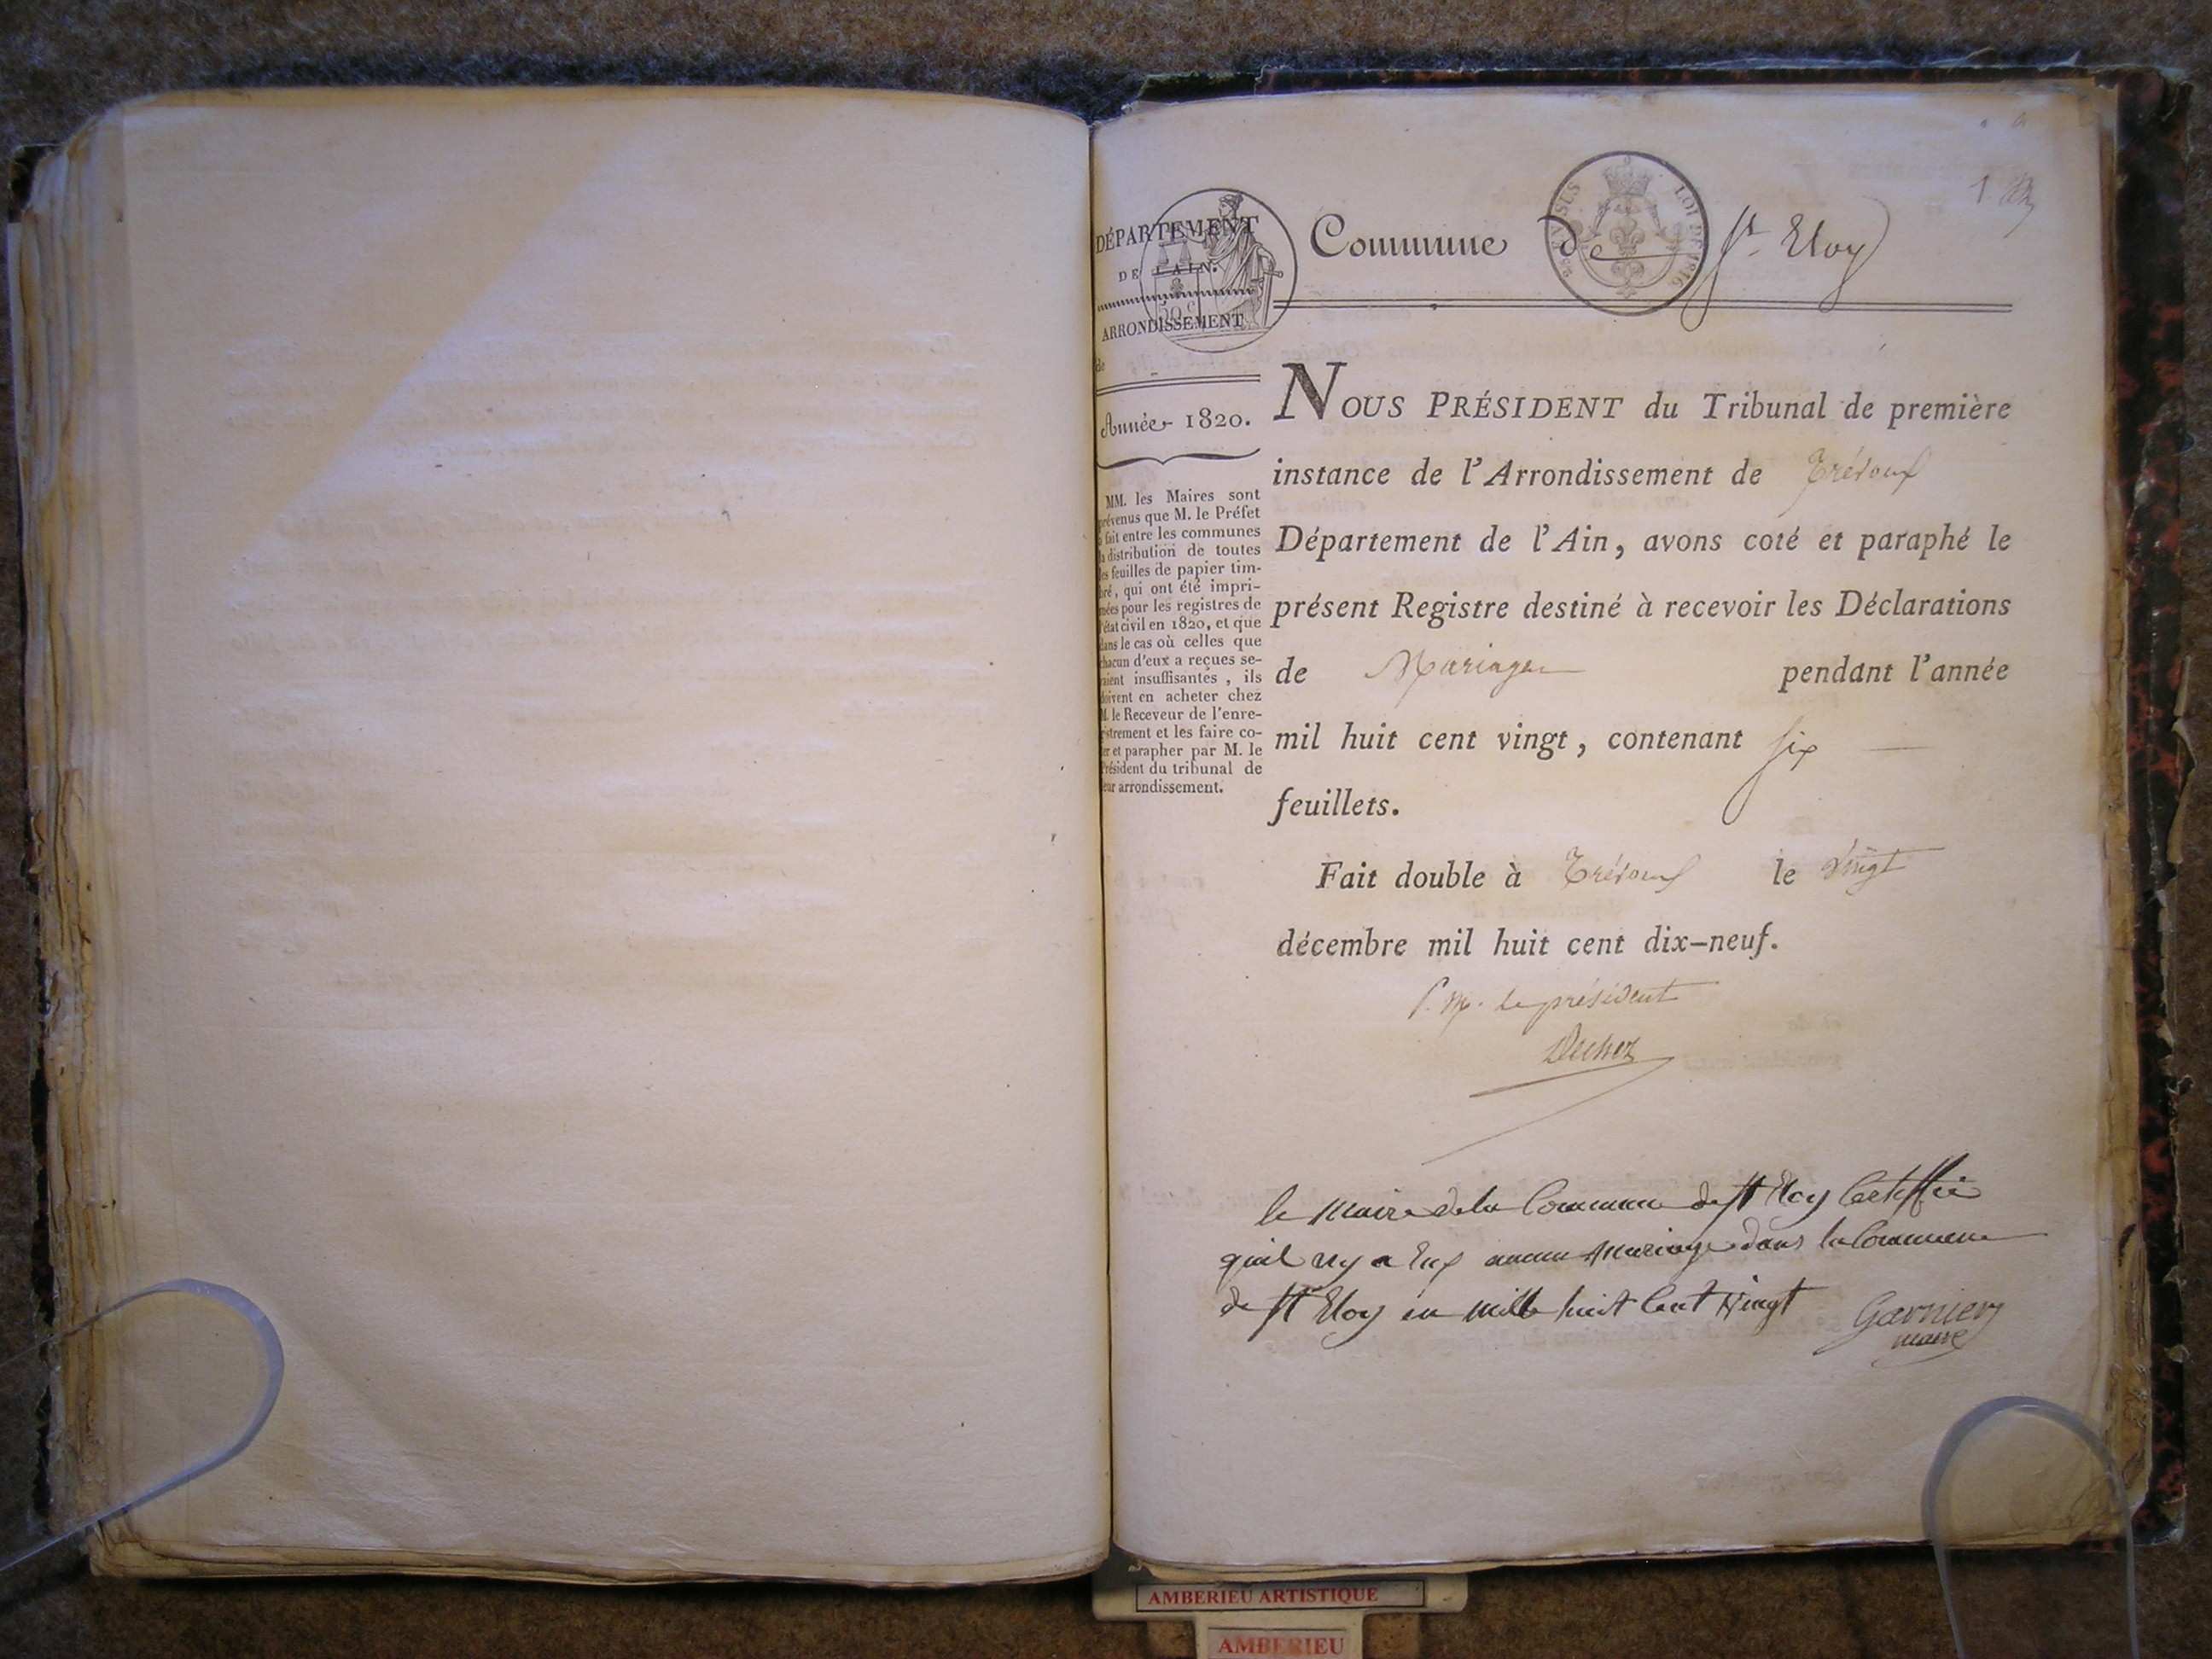 1
DÉPARTEMENT
DE L'AIN.
ARRONDISSEMENT
de
Année 1820.
MM. les Maires sont
prévenus que M. le Préfet
a fait entre les communes
la distribution de toutes
les feuilles de papier tim-
bré, qui ont été impri-
mées pour les registres de
l'état civil en 1820, et que
dans le cas où celles que
chacun d'eux a reçues se-
raient insuffisantes, ils
doivent en acheter chez
M. le Receveur de l'enre-
gistrement et les faire co-
ter et parapher par M. le
Président du tribunal de
leur arrondissement.
Commune de St. Eloy
NOUS PRÉSIDENT du Tribunal de première
instance de l'Arrondissement de Trévoux
Département de l'Ain, avons coté et paraphé le
présent Registre destiné à recevoir les Déclarations
de Mariages pendant l'année
mil huit cent vingt, contenant six
feuillets.
Fait double à Trévoux le vingt
décembre mil huit cent dix-neuf.
P. M. le président
le Maire de la Commune de St Eloy Certiffie
quil ny a Eup aucun Mariage dans la Commune
de St Eloy en mille huit Cent Vingt
Garnier
maire
AMBERIEU ARTISTIQUE
AMBERIEU